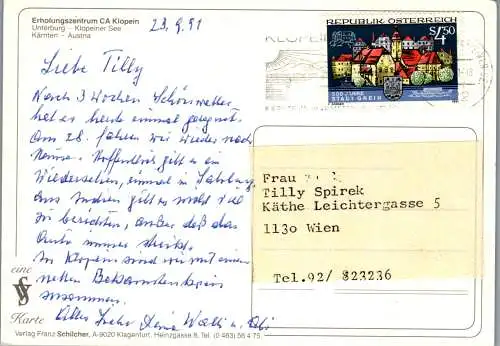 Erholungszentrum CA Klopein
Unterburg - Klopeiner See
Kärnten - Austria
23.9.91
REPUBLIK ÖSTERREICH
S 4,50
500 JAHRE
STADT GREIN
KLOPEIN
Liebe Tilly
Nach 3 Wochen Schönwetter
hat es heute einmal geregnet.
Am 28. fahren wir wieder nach
Hause. Hoffentlich gibt es ein
Wiedersehen, einmal in
Aus gibt es nicht viel
zu berichten, außer daß das
Auto immer
In Klopein sind wir mit einem
netten Bekanntenkreis
zusammen.
Alles Liebe Deine Walli u.
Frau
Tilly Spirek
Käthe Leichtergasse 5
1130 Wien
Tel.92/ 823236
eine
Karte
Verlag Franz Schilcher, A-9020 Klagenfurt, Heinzgasse 8, Tel. (0 463) 56 4 75